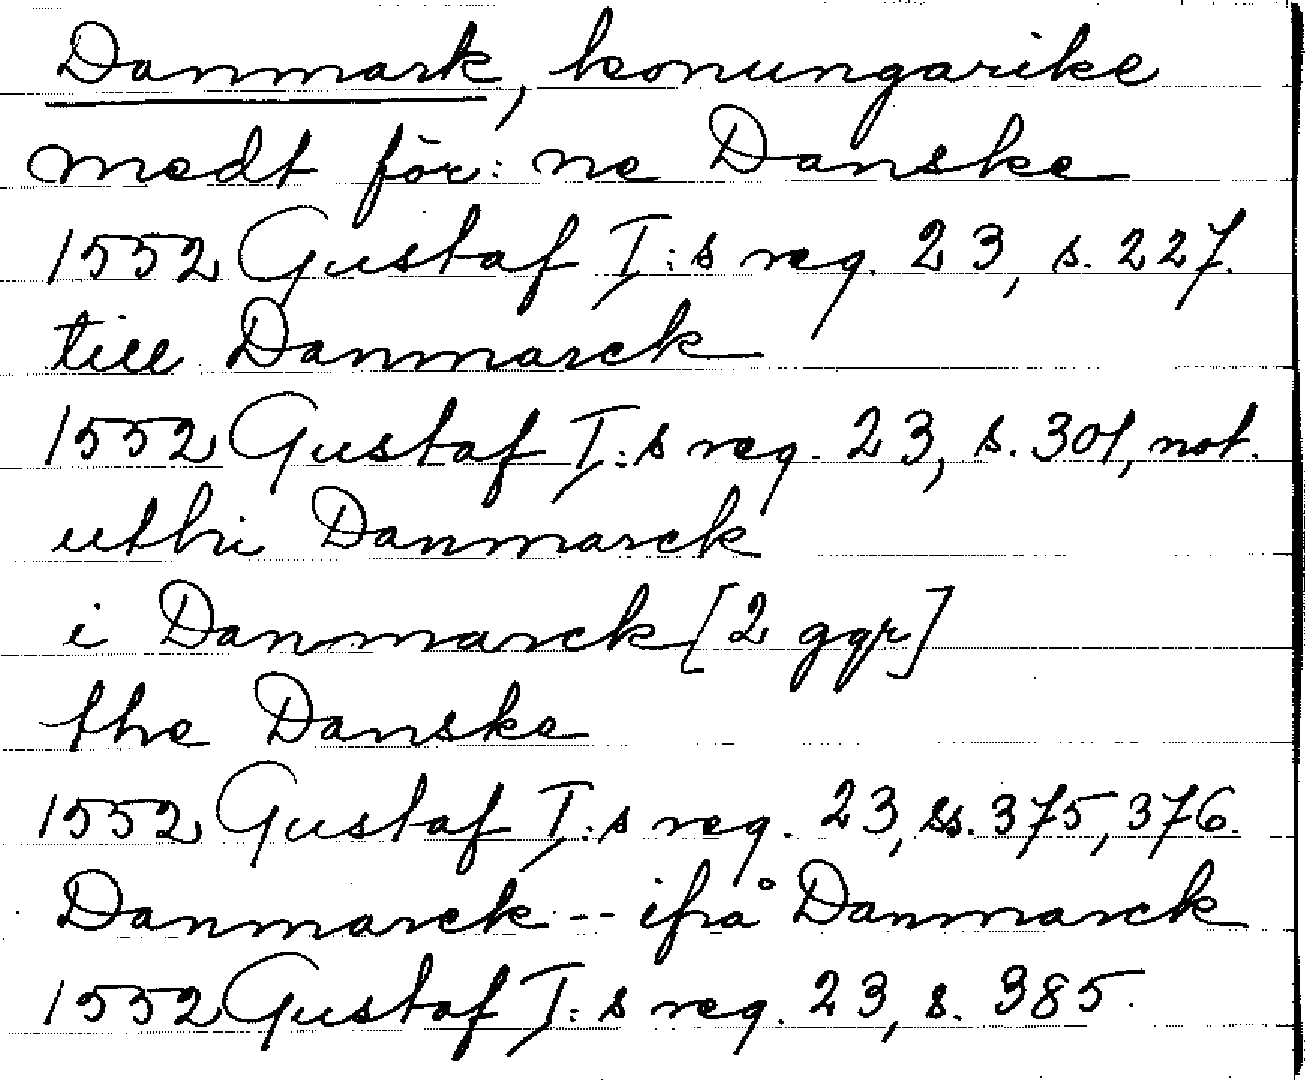 Danmark, konungarike
medt för: ne Danske
1552 Gustaf I:s reg. 23, s. 227.
till Danmarck
1552 Gustaf I:s reg. 23, s. 301, not.
uthi Danmarck
i Danmarck [2 ggr]
the Danske
1552 Gustaf I:s reg. 23, ss. 375, 376.
Danmarck -- ifrå Danmarck
1552 Gustaf I:s reg. 23, s. 385.